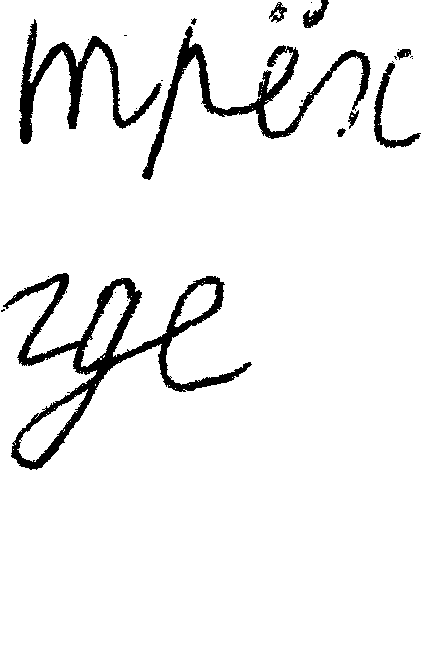 трёх
где